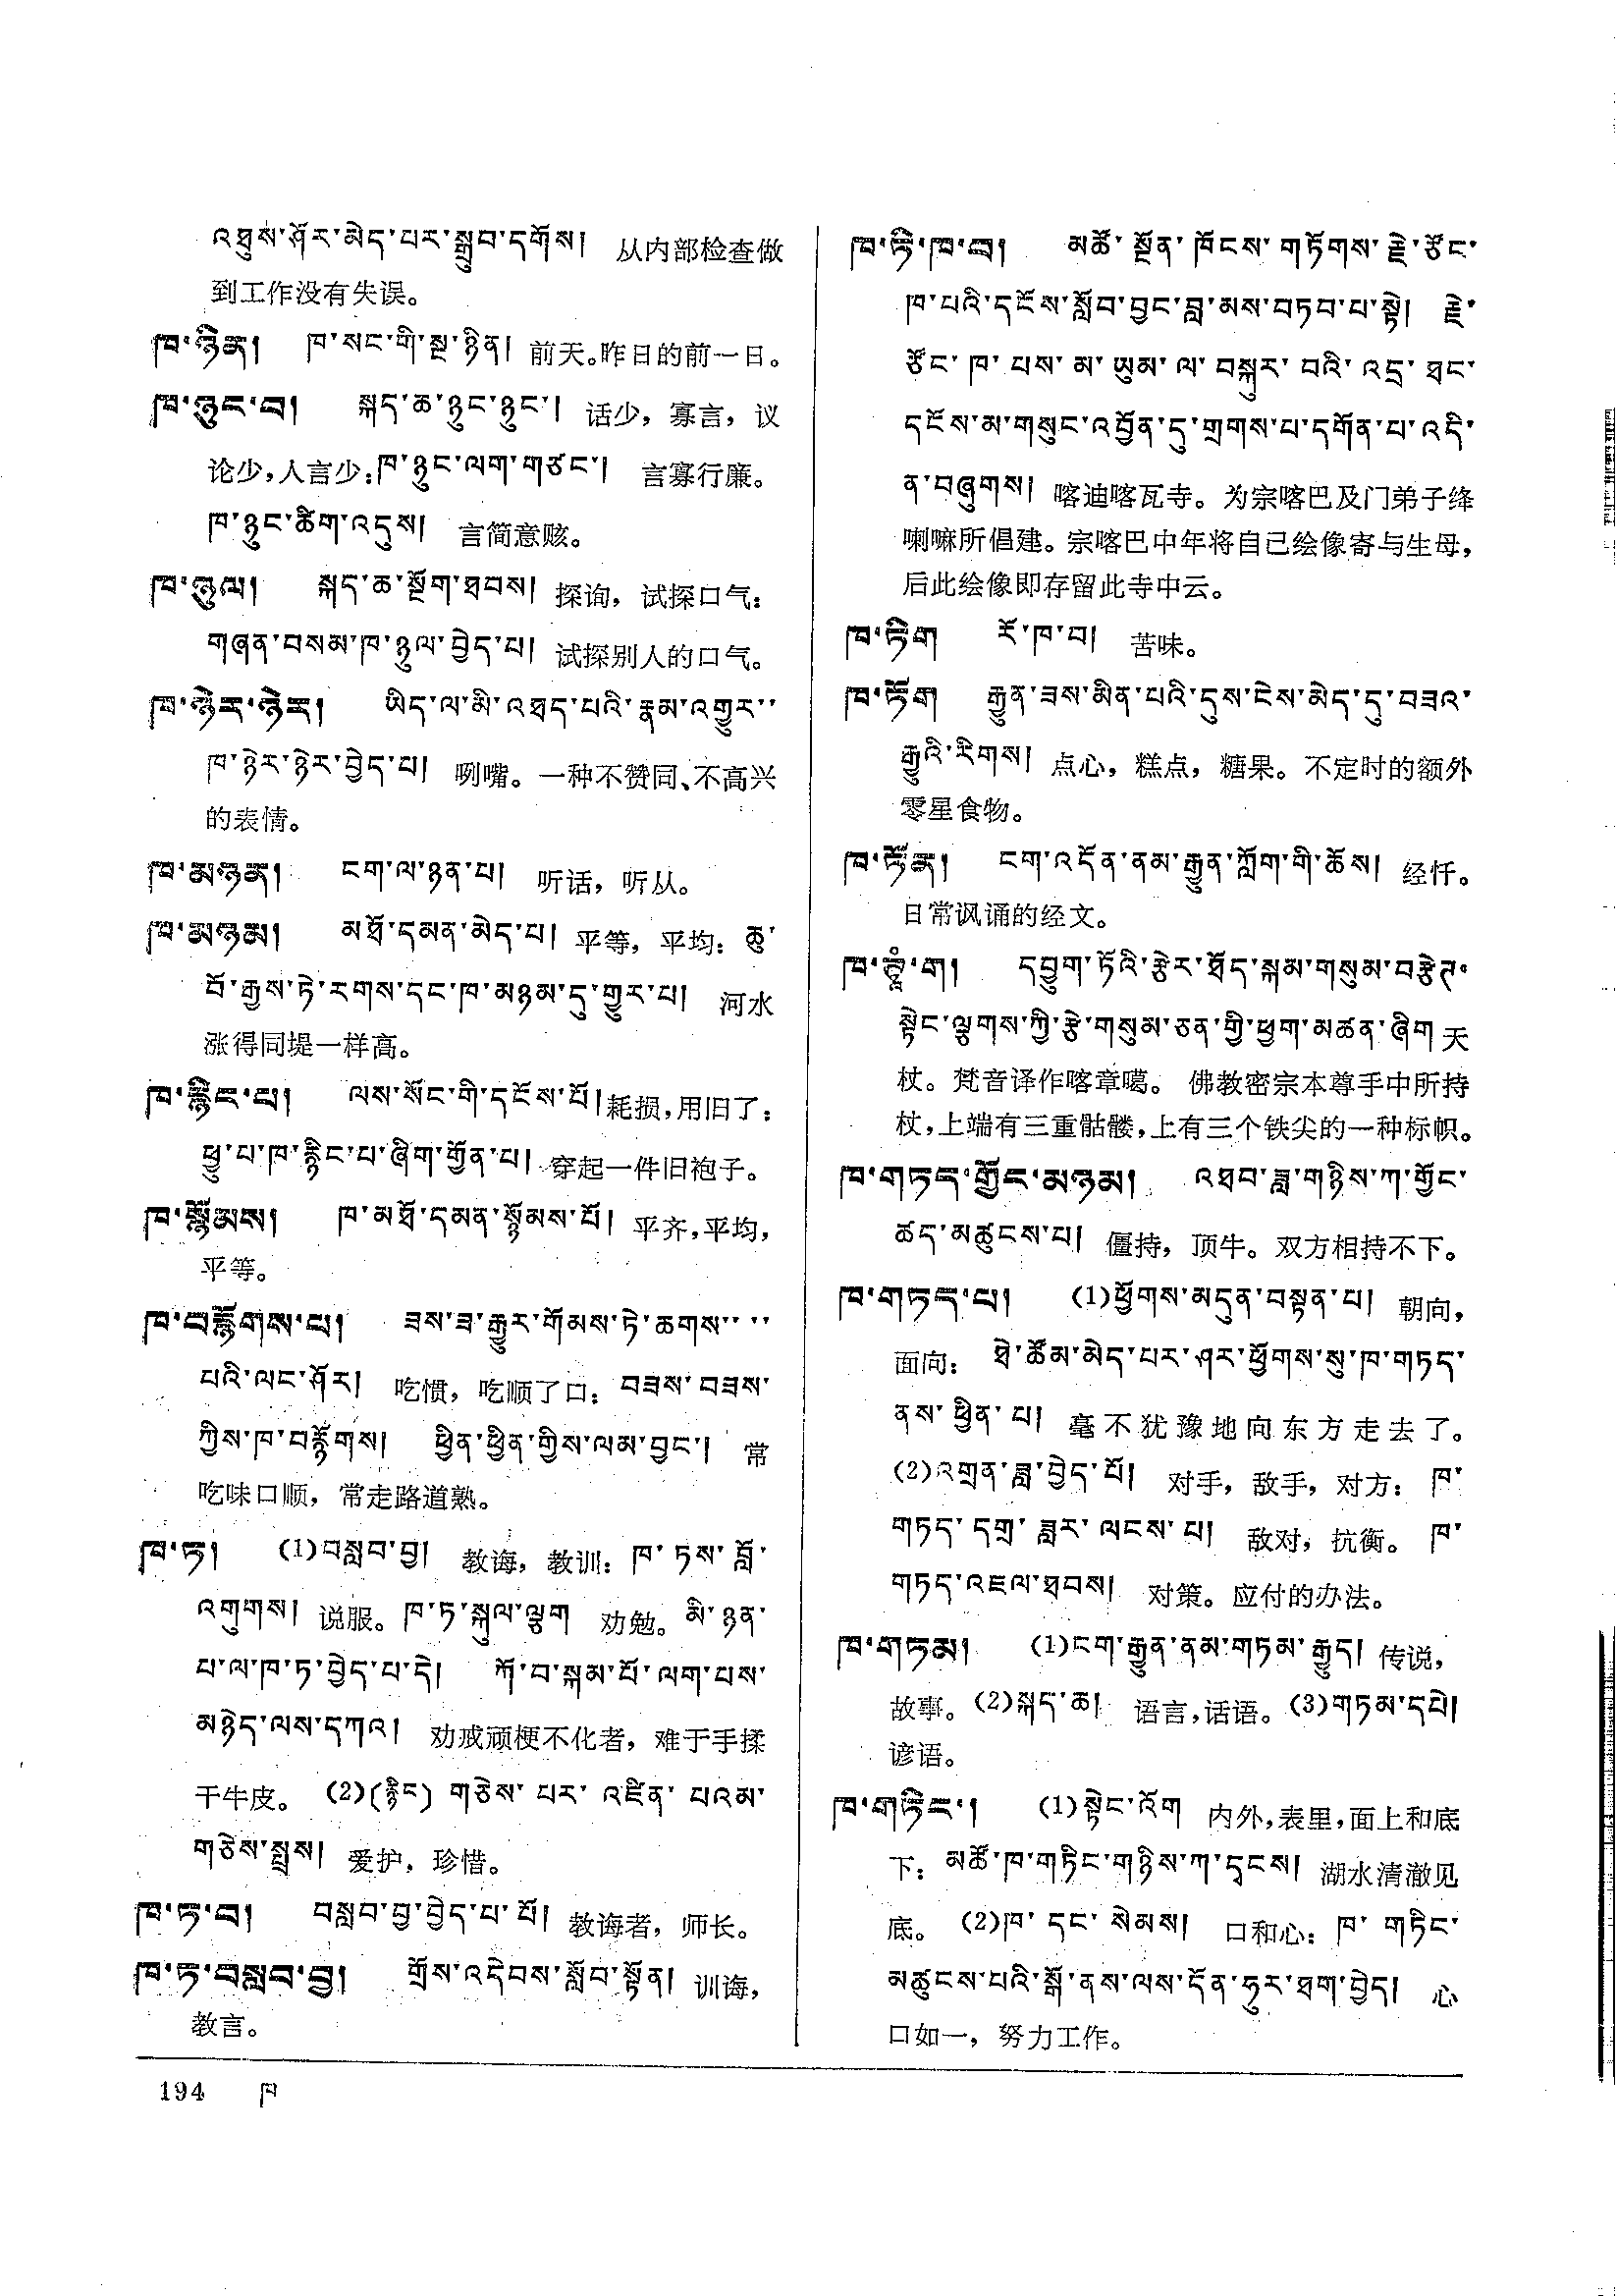 འཐུས་ཤོར་མེད་པར་སྒྲུབ་དགོས། 从内部检查做
到工作没有失误。
ཁ་ཉིན། ཁ་སང་གི་སྔ་ཉིན། 前天。昨日的前一日。
ཁ་ཉུང་བ། སྐད་ཆ་ཉུང་ཉུང་། 话少，寡言，议
论少，人言少：ཁ་ཉུང་ལག་གཙང་། 言寡行廉。
ཁ་ཉུང་ཚིག་འདུས། 言简意赅。
ཁ་ཉུལ། སྐད་ཆ་སྔོག་ཐབས། 探询，试探口气：
གཞན་བསམ་ཁ་ཉུལ་བྱེད་པ། 试探别人的口气。
ཁ་ཉེར་ཉེར། ཡིད་ལ་མི་འཐད་པའི་རྣམ་འགྱུར་་
ཁ་ཉེར་ཉེར་བྱེད་པ། 咧嘴。一种不赞同、不高兴
的表情。
ཁ་མཉན། ངག་ལ་ཉན་པ། 听话，听从。
ཁ་མཉམ། མཐོ་དམན་མེད་པ། 平等，平均：ཆུ་
བོ་རྒྱས་ཏེ་རགས་དང་ཁ་མཉམ་དུ་གྱུར་པ། 河水
涨得同堤一样高。
ཁ་རྙིང་པ། ལས་སོང་གི་དངོས་པོ། 耗损，用旧了：
ཕྱུ་པ་ཁ་རྙིང་པ་ཞིག་གྱོན་པ། 穿起一件旧袍子。
ཁ་སྙོམས། ཁ་མཐོ་དམན་སྙོམས་པོ། 平齐，平均，
平等。
ཁ་བརྙོགས་པ། ཟས་ཟ་རྒྱུར་གོམས་ཏེ་ཆགས་་་
པའི་ལང་ཤོར། 吃惯，吃顺了口：བཟས་བཟས་
ཀྱིས་ཁ་བརྙོགས། ཕྱིན་ཕྱིན་གྱིས་ལམ་བྱང་། 常
吃味口顺，常走路道熟。
ཁ་ཏ། (1)བསླབ་བྱ། 教诲，教训：ཁ་ཏས་བློ་
འགུགས། 说服。ཁ་ཏ་སྐུལ་ལྕག 劝勉。མི་ཉན་
པ་ལ་ཁ་ཏ་བྱེད་པ་དེ། ཀོ་བ་སྐམ་པོ་ལག་པས་
མཉེད་ལས་དཀའ། 劝戒顽梗不化者，难于手揉
干牛皮。 (2)(རྙིང) གཅེས་པར་འཛིན་པའམ་
གཅེས་སྤྲས། 爱护，珍惜。
ཁ་ཏ་བ། བསླབ་བྱ་བྱེད་པ་པོ། 教诲者，师长。
ཁ་ཏ་བསླབ་བྱ། གྲོས་འདེབས་སློབ་སྟོན། 训诲，
教言。
ཁ་ཏི་ཁ་བ། མཚོ་སྔོན་ཁོངས་གཏོགས་རྗེ་ཙོང་
ཁ་པའི་དངོས་སློབ་བྱང་བླ་མས་བཏབ་པ་སྟེ། རྗེ་
ཙོང་ཁ་པས་མ་ཡུམ་ལ་བསྐུར་བའི་འདྲ་ཐང་
དངོས་མ་གསུང་འབྱོན་དུ་གྲགས་པ་དགོན་པ་འདི་
ན་བཞུགས། 喀迪喀瓦寺。为宗喀巴及门弟子绛
喇嘛所倡建。宗喀巴中年将自己绘像寄与生母，
后此绘像即存留此寺中云。
ཁ་ཏིག རོ་ཁ་བ། 苦味。
ཁ་ཏོག རྒྱུན་ཟས་མིན་པའི་དུས་ངེས་མེད་དུ་བཟའ་
རྒྱུའི་རིགས། 点心，糕点，糖果。不定时的额外
零星食物。
ཁ་ཏོན། ངག་འདོན་ནམ་རྒྱུན་ཀློག་གི་ཆོས། 经忏。
日常讽诵的经文。
ཁ་ཊཱཾ་ག། དབྱུག་ཏོའི་རྩེར་ཐོད་སྐམ་གསུམ་བརྩེཊ་
སྟེང་ལྕགས་ཀྱི་རྩེ་གསུམ་ཅན་གྱི་ཕྱག་མཚན་ཞིག 天
杖。梵音译作喀章噶。佛教密宗本尊手中所持
杖，上端有三重骷髅，上有三个铁尖的一种标帜。
ཁ་གཏད་གྱོང་མཉམ། འཐབ་ཟླ་གཉིས་ཀ་གྱོང་
ཚད་མཚུངས་པ། 僵持，顶牛。双方相持不下。
ཁ་གཏད་པ། (1)ཕྱོགས་མདུན་བསྟན་པ། 朝向，
面向：ཐེ་ཚོམ་མེད་པར་ཤར་ཕྱོགས་སུ་ཁ་གཏད་
ནས་ཕྱིན་པ། 毫不犹豫地向东方走去了。
(2)འགྲན་ཟླ་བྱེད་པོ། 对手，敌手，对方：ཁ་
གཏད་དགྲ་ཟླར་ལངས་པ། 敌对，抗衡。 ཁ་
གཏད་འཇལ་ཐབས། 对策。应付的办法。
ཁ་གཏམ། (1)ངག་རྒྱུན་ནམ་གཏམ་རྒྱུད། 传说，
故事。(2)སྐད་ཆ། 语言，话语。(3)གཏམ་དཔེ།
谚语。
ཁ་གཏིང་། (1)སྟེང་འོག 内外，表里，面上和底
下：མཚོ་ཁ་གཏིང་གཉིས་ཀ་དྭངས། 湖水清澈见
底。 (2)ཁ་དང་སེམས། 口和心：ཁ་གཏིང་
མཚུངས་པའི་སྒོ་ནས་ལས་དོན་ཧུར་ཐག་བྱེད། 心
口如一，努力工作。
194 ཁ